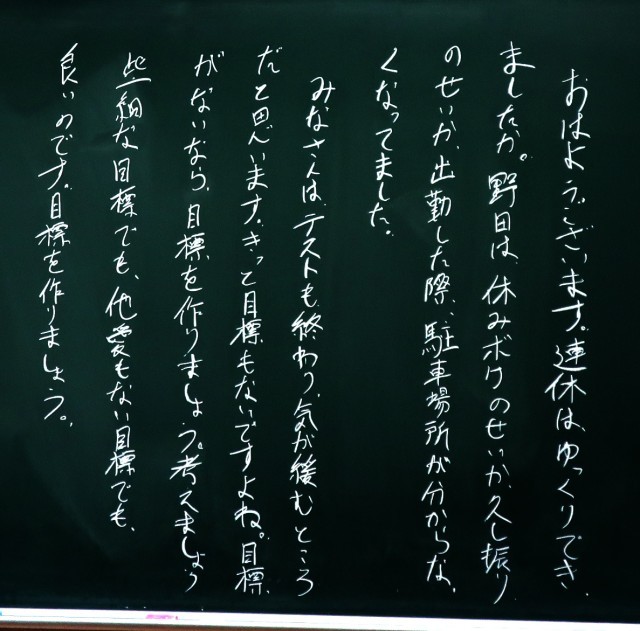 おはようございます。連休は、ゆっくりでき
ましたか。野田は、休みボケのせいか、久し振り
のせいか、出勤した際、駐車場所が分からな
くなってました。
みなさんは、テストも終わり、気が緩むところ
だと思います。きって目標もないですよね。目標
がないなら、目標を作りましょう。考えましょう
些細な目標でも、他愛もない目標でも、
良いのです。目標を作りましょう。